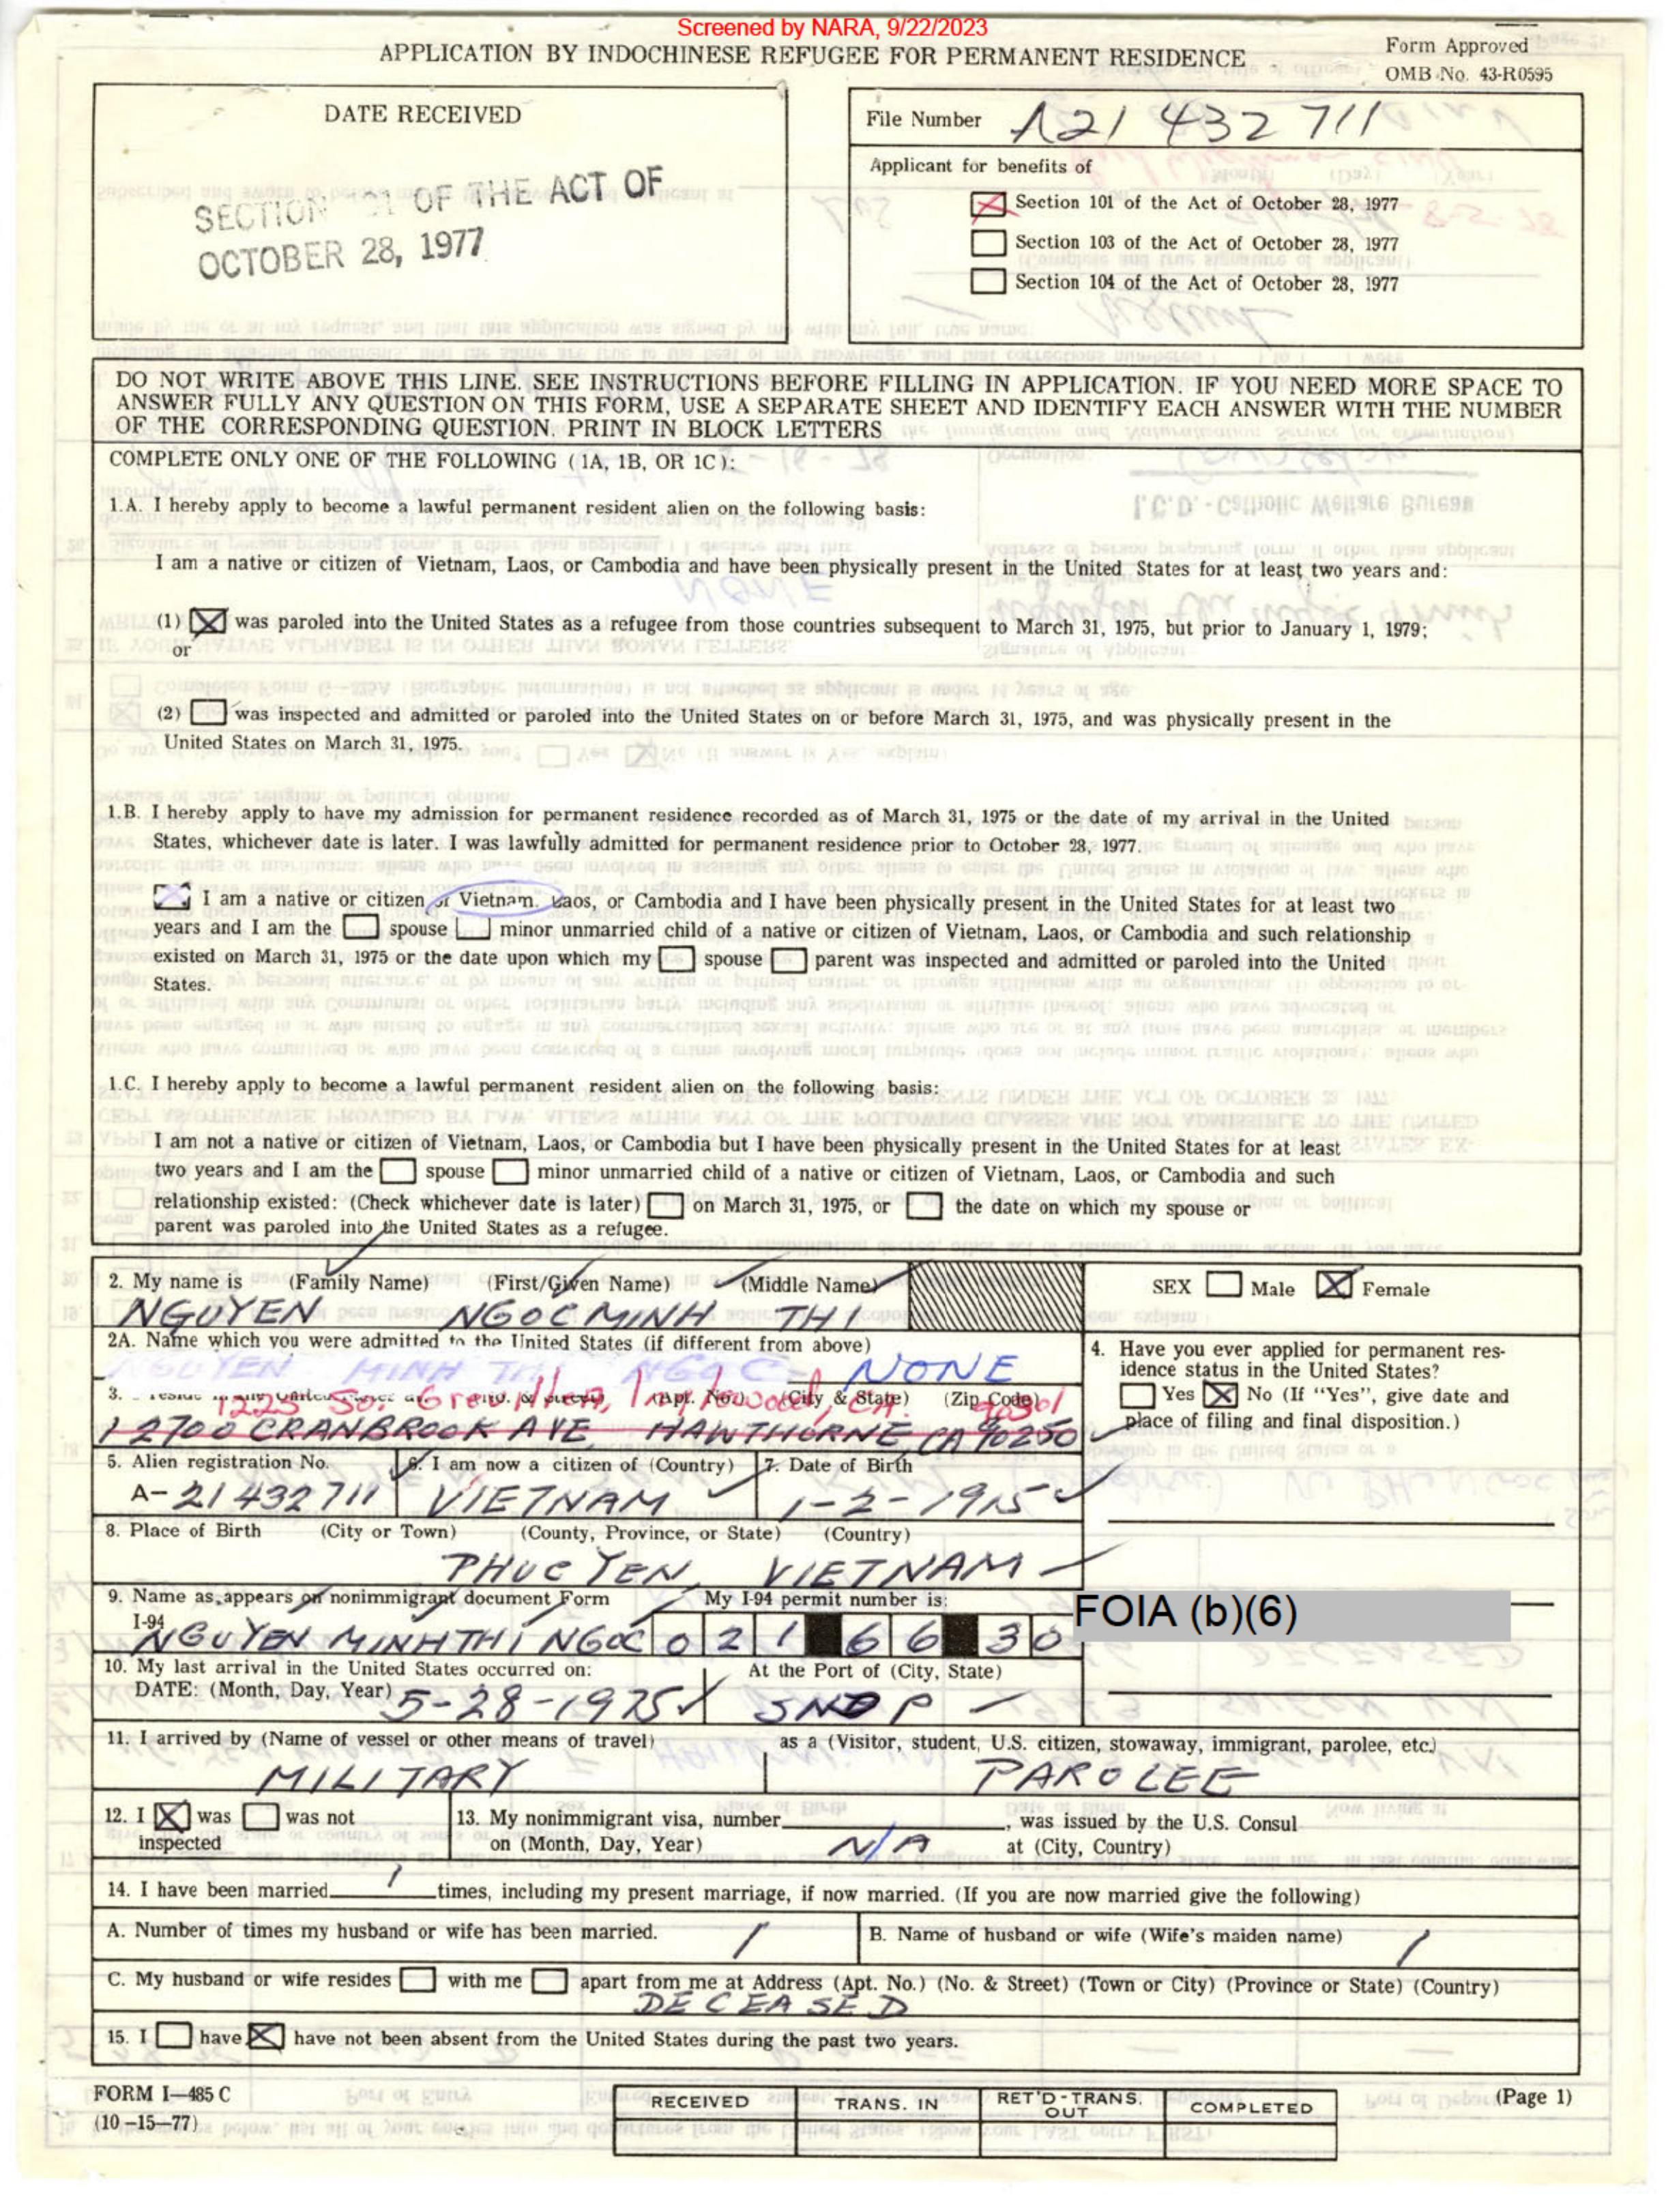 Screened by NARA, 9/22/2023
APPLICATION BY INDOCHINESE REFUGEE FOR PERMANENT RESIDENCE
Form Approved
OMB No. 43-R0595
DATE RECEIVED
SECTION OF THE ACT OF
OCTOBER 28, 1977
File Number A21 432 711
Applicant for benefits of
Section 101 of the Act of October 28, 1977
Section 103 of the Act of October 28, 1977
Section 104 of the Act of October 28, 1977
DO NOT WRITE ABOVE THIS LINE. SEE INSTRUCTIONS BEFORE FILLING IN APPLICATION. IF YOU NEED MORE SPACE TO
ANSWER FULLY ANY QUESTION ON THIS FORM, USE A SEPARATE SHEET AND IDENTIFY EACH ANSWER WITH THE NUMBER
OF THE CORRESPONDING QUESTION. PRINT IN BLOCK LETTERS
COMPLETE ONLY ONE OF THE FOLLOWING (1A, 1B, OR 1C):
1.A. I hereby apply to become a lawful permanent resident alien on the following basis:
I am a native or citizen of Vietnam, Laos, or Cambodia and have been physically present in the United States for at least two years and:
(1) was paroled into the United States as a refugee from those countries subsequent to March 31, 1975, but prior to January 1, 1979;
or
(2) was inspected and admitted or paroled into the United States on or before March 31, 1975, and was physically present in the
United States on March 31, 1975.
1.B. I hereby apply to have my admission for permanent residence recorded as of March 31, 1975 or the date of my arrival in the United
States, whichever date is later. I was lawfully admitted for permanent residence prior to October 28, 1977.
I am a native or citizen of Vietnam, Laos, or Cambodia and I have been physically present in the United States for at least two
years and I am the spouse minor unmarried child of a native or citizen of Vietnam, Laos, or Cambodia and such relationship
existed on March 31, 1975 or the date upon which my spouse parent was inspected and admitted or paroled into the United
States.
1.C. I hereby apply to become a lawful permanent resident alien on the following basis:
I am not a native or citizen of Vietnam, Laos, or Cambodia but I have been physically present in the United States for at least
two years and I am the spouse minor unmarried child of a native or citizen of Vietnam, Laos, or Cambodia and such
relationship existed: (Check whichever date is later) on March 31, 1975, or the date on which my spouse or
parent was paroled into the United States as a refugee.
2. My name is (Family Name) (First/Given Name) (Middle Name)
NGUYEN NGOC MINH THI
SEX Male Female
2A. Name which you were admitted to the United States (if different from above)
NGUYEN MINH THI NGOC NONE
3. (Apt. No.) (City & State) (Zip Code)
1225 So. Inglewood, CA. 90301
12700 CRANBROOK AVE HAWTHORNE, CA 90250
4. Have you ever applied for permanent res-
idence status in the United States?
Yes No (If "Yes", give date and
place of filing and final disposition.)
5. Alien registration No. 6. I am now a citizen of (Country) 7. Date of Birth
A-21 432 711 VIETNAM 1-2-1915
8. Place of Birth (City or Town) (County, Province, or State) (Country)
PHUC YEN, VIETNAM
9. Name as appears on nonimmigrant document Form My I-94 permit number is:
I-94 NGUYEN MINH THI NGOC 0 2 1 6 6 3 0
FOIA (b)(6)
10. My last arrival in the United States occurred on: At the Port of (City, State)
DATE: (Month, Day, Year) 5-28-1975 SNDP
11. I arrived by (Name of vessel or other means of travel) as a (Visitor, student, U.S. citizen, stowaway, immigrant, parolee, etc.)
MILITARY PAROLEE
12. I was was not 13. My nonimmigrant visa, number , was issued by the U.S. Consul
inspected on (Month, Day, Year) N/A at (City, Country)
14. I have been married 1 times, including my present marriage, if now married. (If you are now married give the following)
A. Number of times my husband or wife has been married. / B. Name of husband or wife (Wife's maiden name) /
C. My husband or wife resides with me apart from me at Address (Apt. No.) (No. & Street) (Town or City) (Province or State) (Country)
DECEASED
15. I have have not been absent from the United States during the past two years.
FORM I-485 C
(10-15-77)
RECEIVED TRANS. IN RET'D-TRANS. OUT COMPLETED
(Page 1)